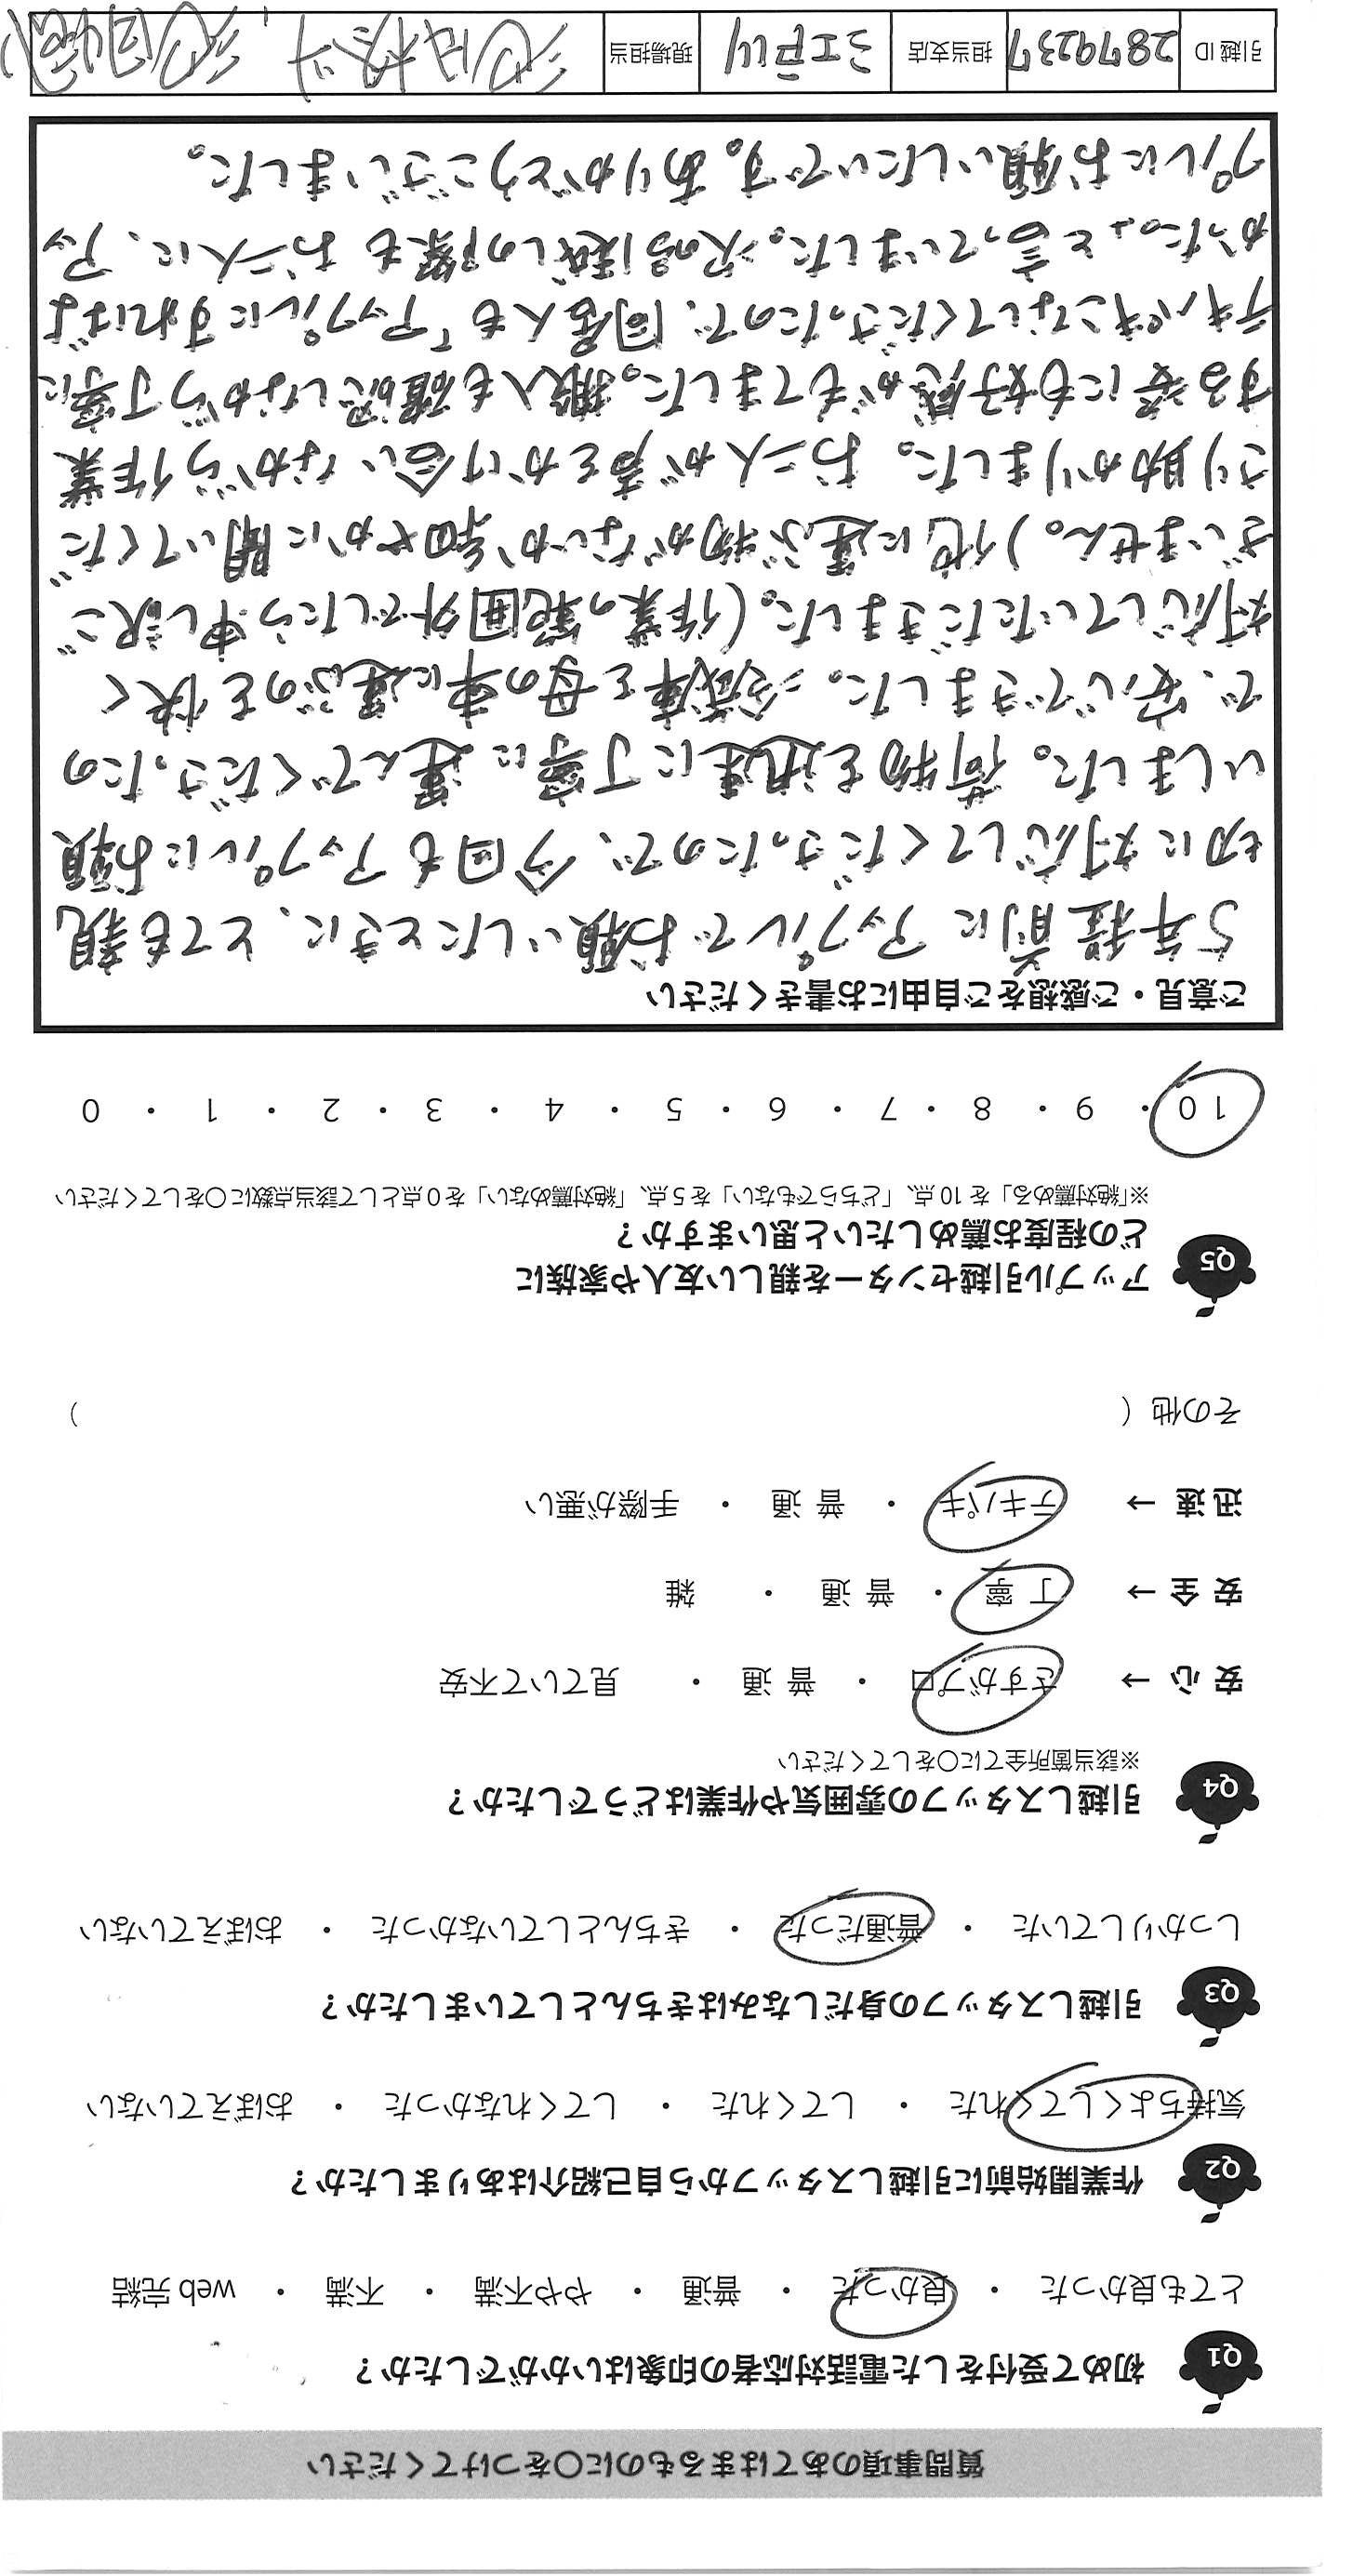 質問事項のあてはまるものに〇をつけてください
Q1 初めて受付をした電話対応者の印象はいかがでしたか？
とても良かった ・ 良かった ・ 普通 ・ やや不満 ・ 不満 ・ web 完結
Q2 作業開始前に引越しスタッフから自己紹介はありましたか？
気持ちよくしてくれた ・ してくれた ・ してくれなかった ・ おぼえていない
Q3 引越しスタッフの身だしなみはきちんとしていましたか？
しっかりしていた ・ 普通だった ・ きちんとしていなかった ・ おぼえていない
Q4 引越しスタッフの雰囲気や作業はどうでしたか？
※該当箇所全てに〇をしてください
安 心 → さすがプロ ・ 普 通 ・ 見ていて不安
安 全 → 丁 寧 ・ 普 通 ・ 雑
迅 速 → テキパキ ・ 普 通 ・ 手際が悪い
その他（ ）
Q5 アップル引越センターを親しい友人や家族に
どの程度お薦めしたいと思いますか？
※「絶対薦める」を 10 点、「どちらでもない」を 5 点、「絶対薦めない」を 0 点として該当点数に〇をしてください
10 ・ 9 ・ 8 ・ 7 ・ 6 ・ 5 ・ 4 ・ 3 ・ 2 ・ 1 ・ 0
ご意見・ご感想をご自由にお書きください
5年程前にアップルでお願いしたときに、とても親
切に対応してくださったので、今回もアップルにお願
いしました。荷物を迅速に丁寧に運んでくださったの
で、安心できました。冷蔵庫を母の車に運ぶのを快く
対応していただきました。（作業の範囲外でしたら申し訳ご
ざいません。）他に運ぶ物がないか和やかに聞いてくだ
さり助かりました。お二人が声をかけ合いながら作業
する姿にも好感がもてました。搬入も確認しながら丁寧に
テキパキこなしてくださったので、同居人も「アップルにすればよ
かった。」と言っていました。次の引越しの際もお二人に、アッ
プルにお願いしたいです。ありがとうございました。
引越 ID 2879237 担当支店 江戸川 現場担当